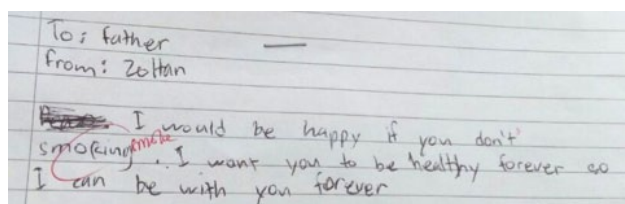 To: father
from: Zoltan
I would be happy if you don't
smoking smoke. I want you to be healthy forever so
I can be with you forever